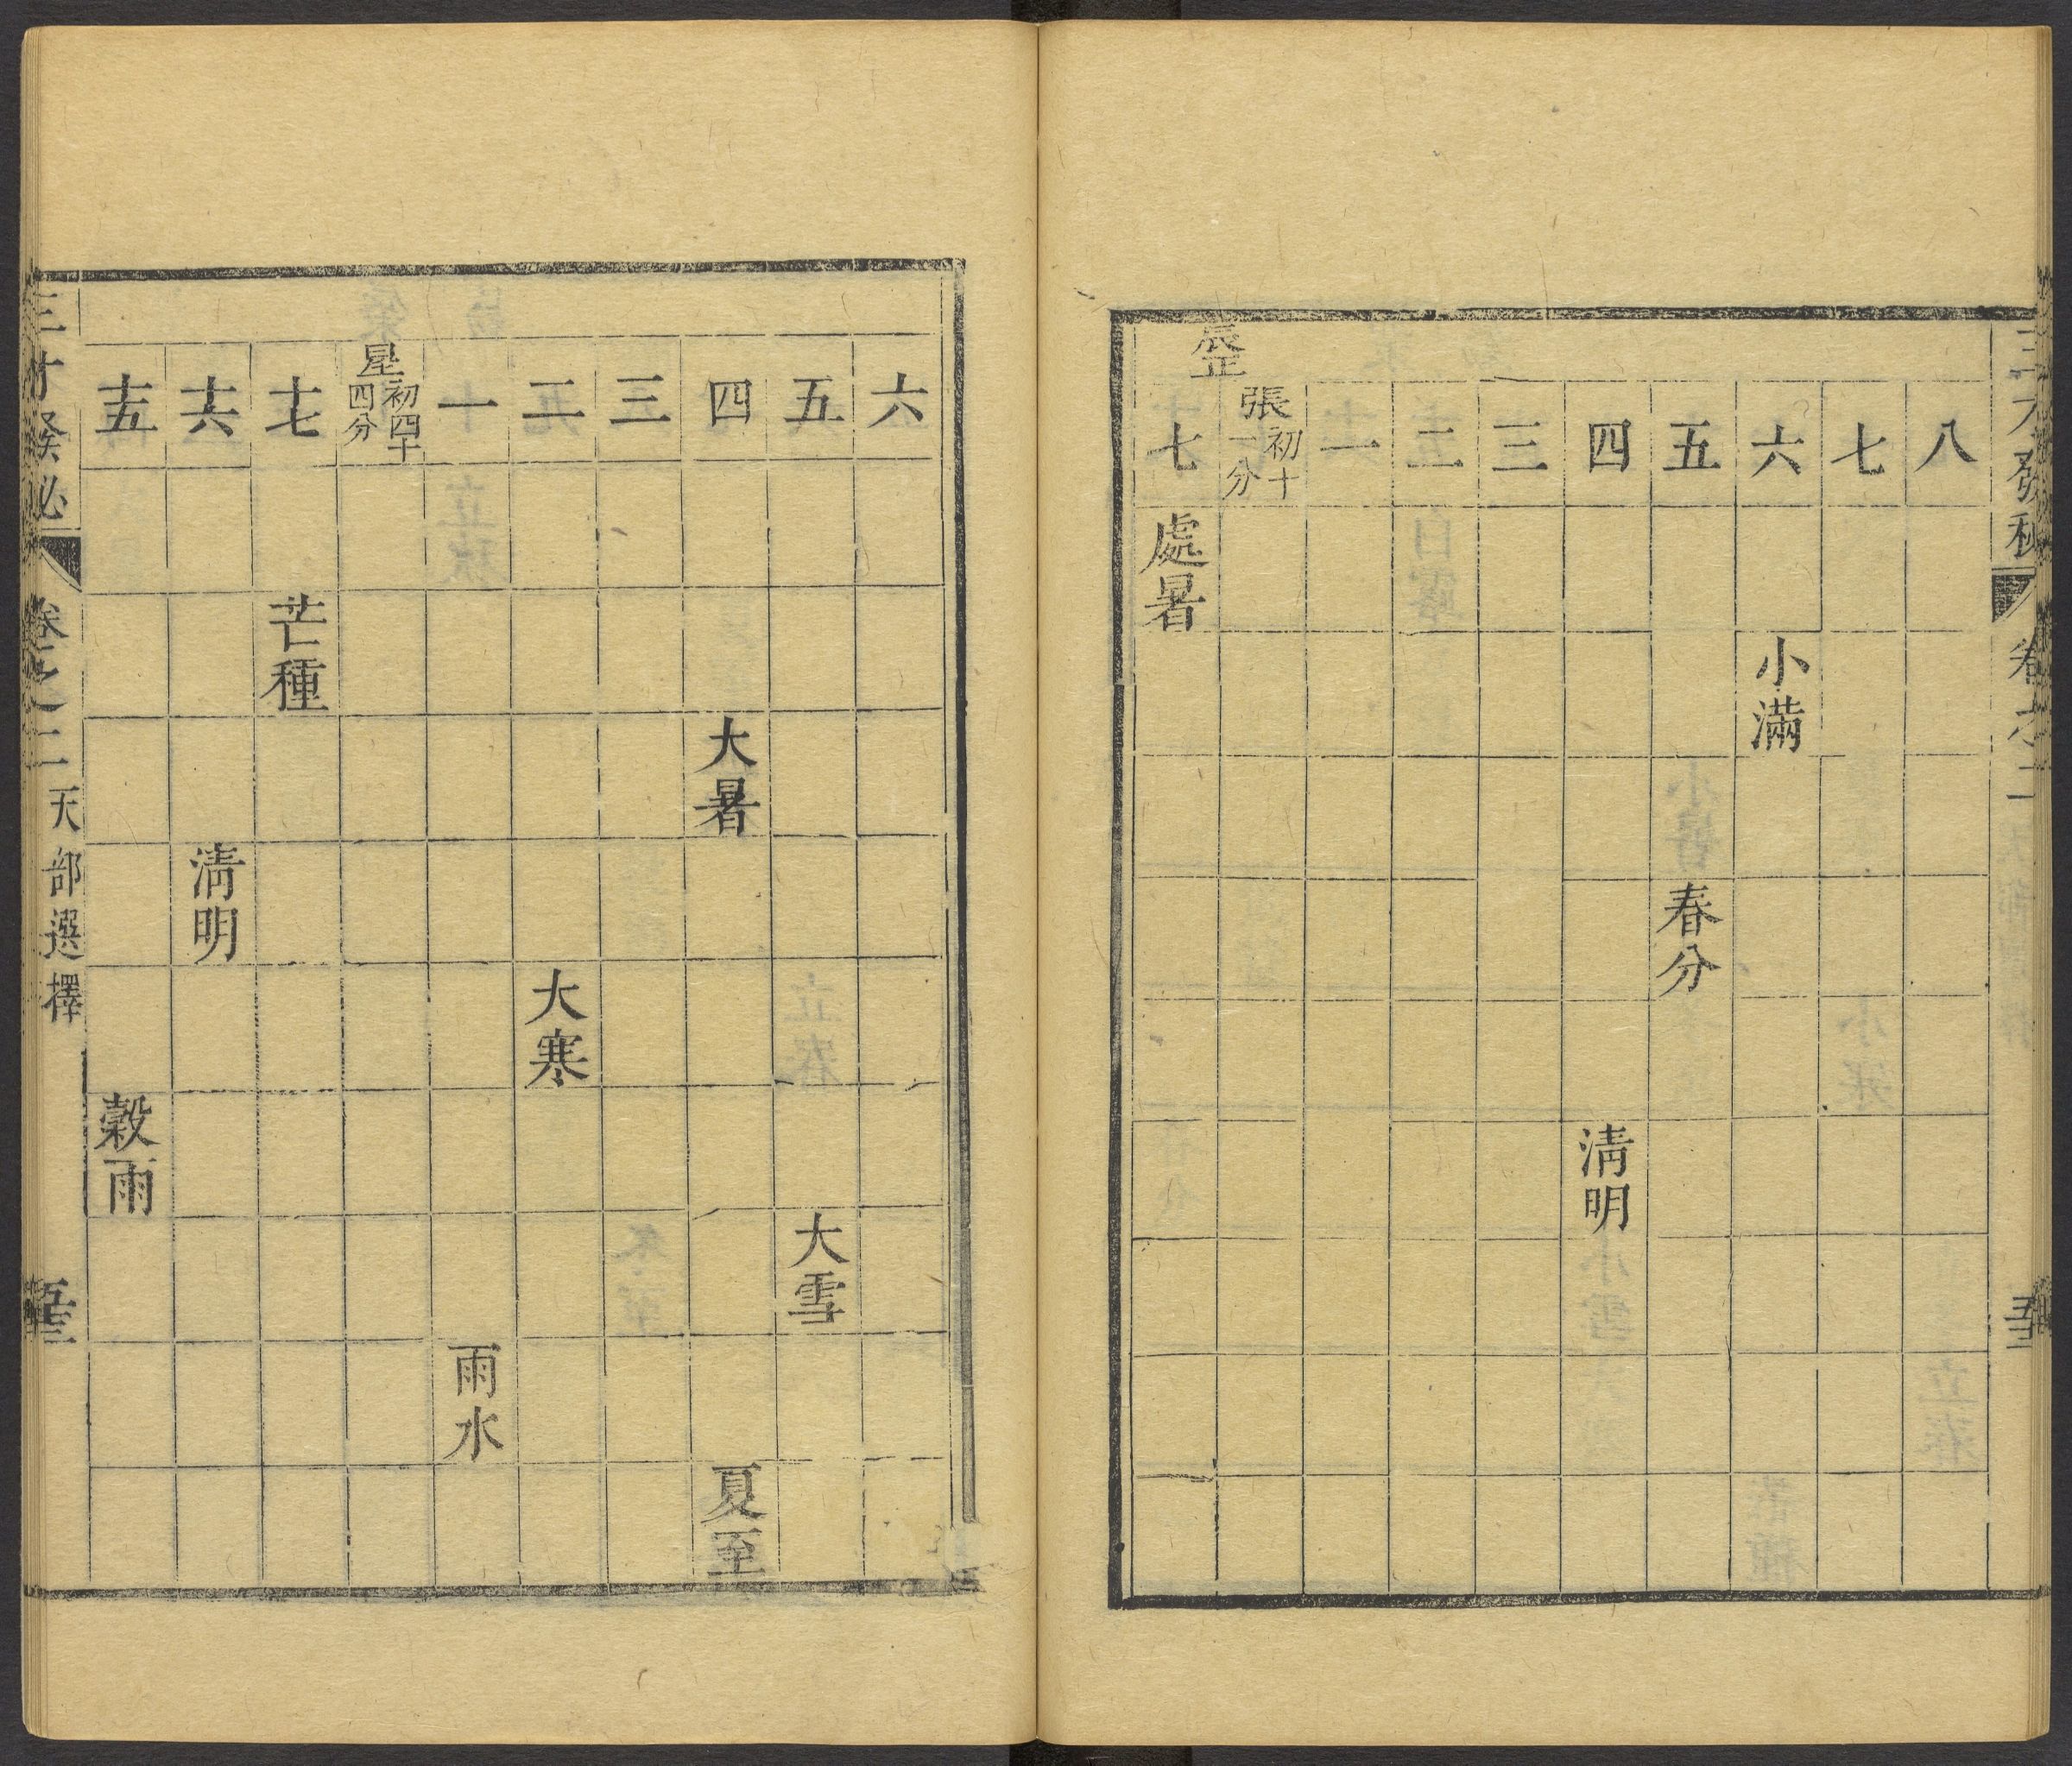 三才發秘
卷之二
八
七
六
小滿
五
春分
四
清明
三
二
一
辰正
張初十一分
七
處暑
六
五
大雪
四
大暑
夏至
三
二
大寒
一
雨水
星初四十四分
十七
芒種
十六
清明
十五
穀雨
三才發秘
卷之二
天部選擇
五十三